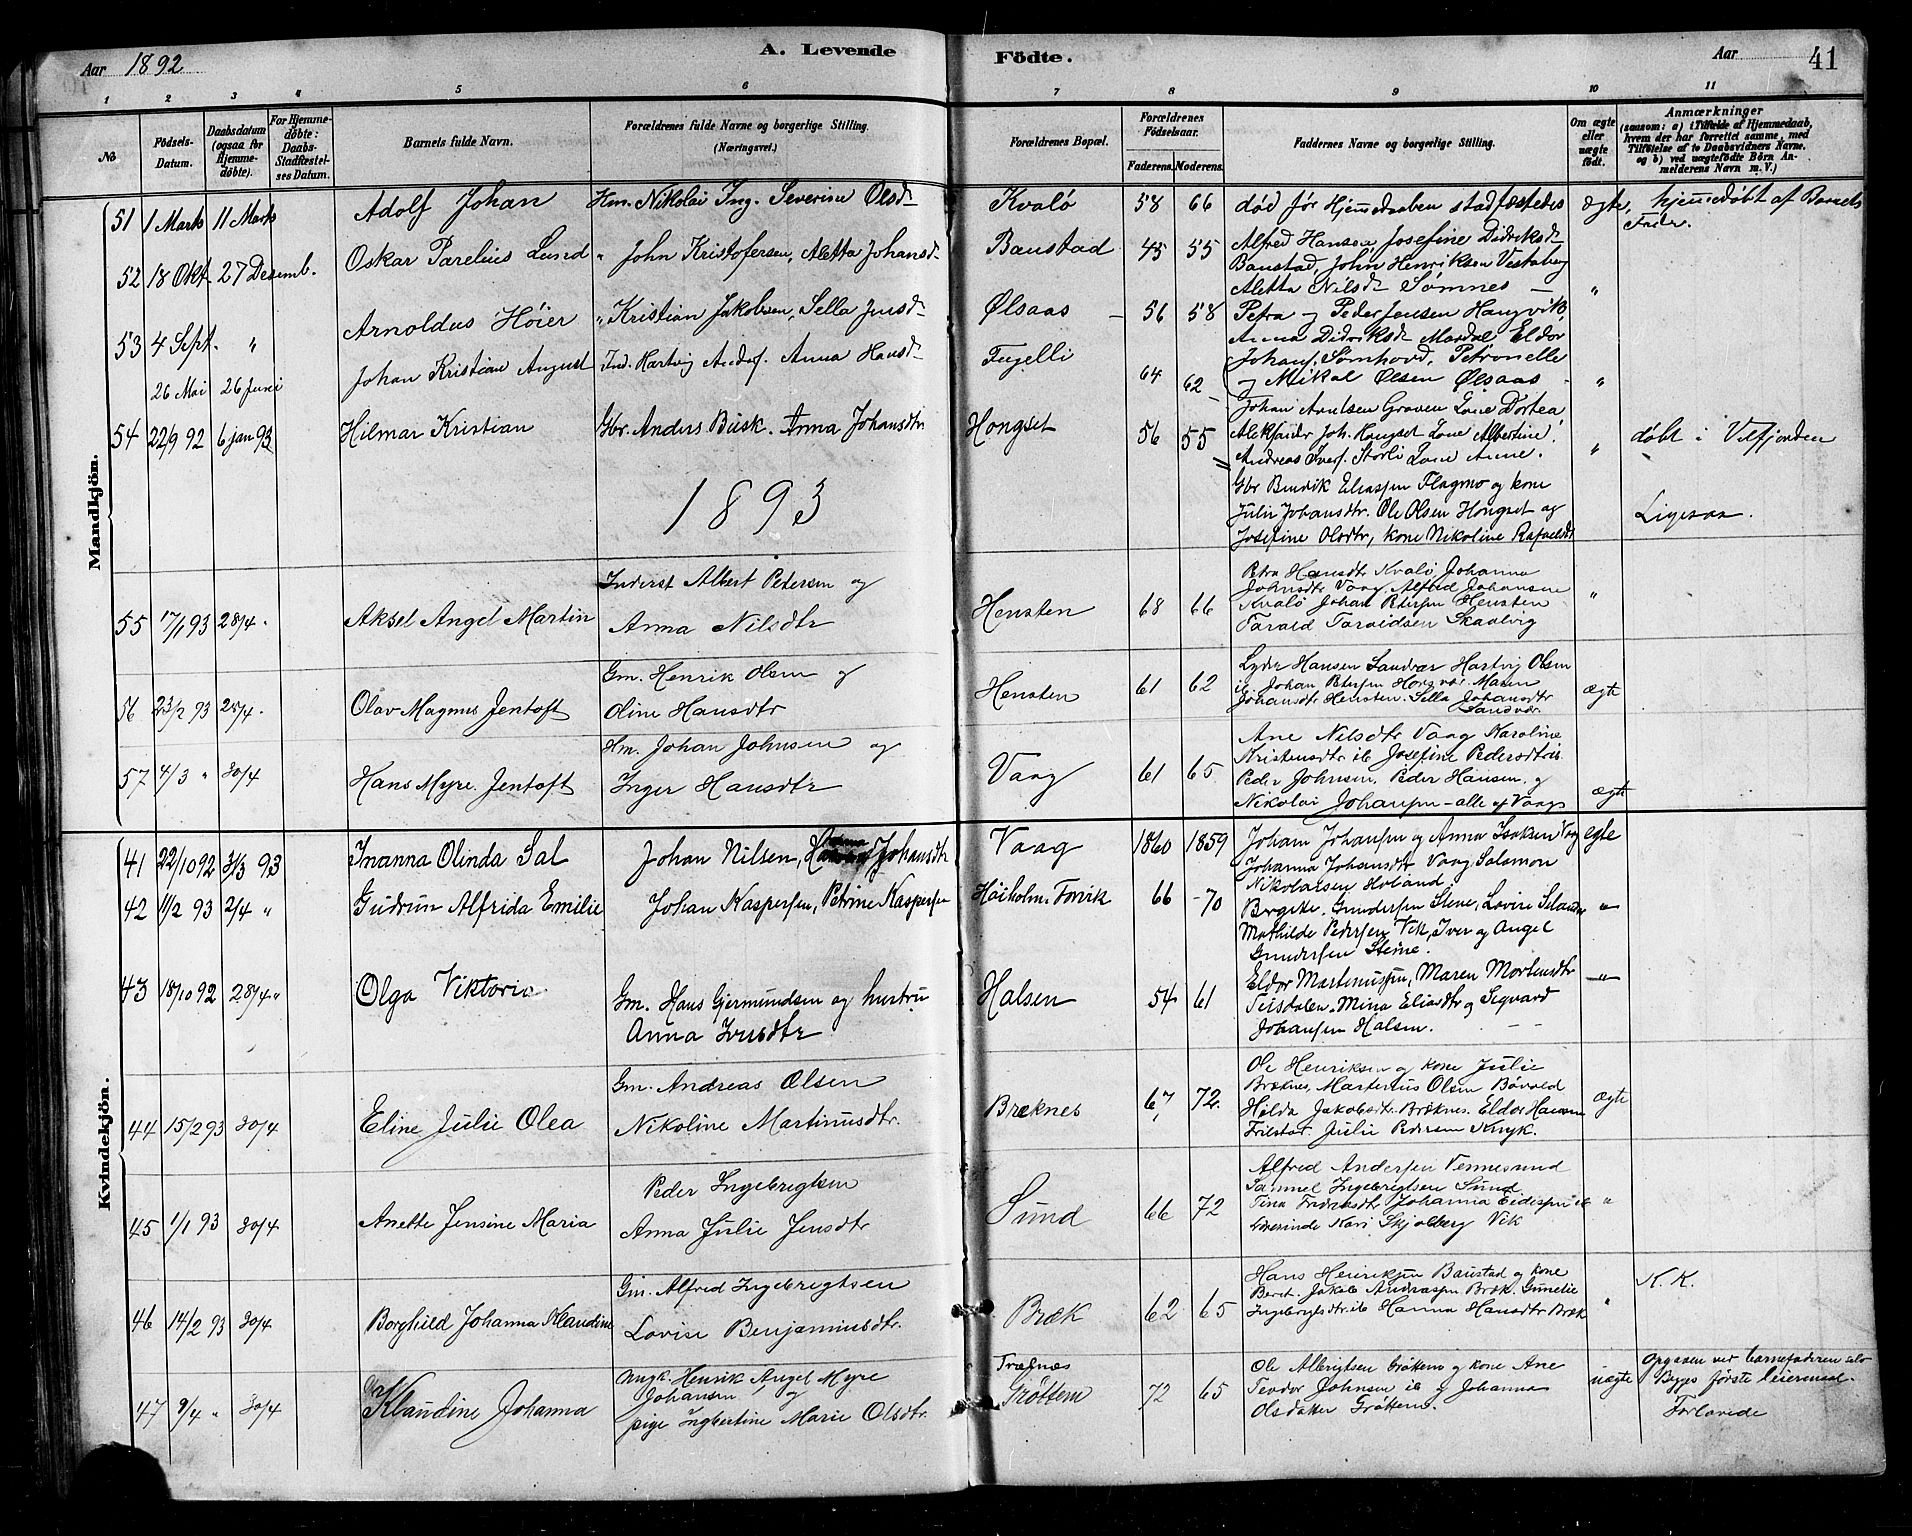 Aar 1892
A. Levende
Födte.
Aar 41
1 2 3 4 5 6 7 8 9 10 11
No
Födsels-Datum.
Daabsdatum (ogsaa for Hjemmedøbte).
For Hjemmedøbte: Daabs-Stadfæstelses Datum.
Barnets fulde Navn.
Forældrenes fulde Navne og borgerlige Stilling. (Næringsvei.)
Forældrenes Bopæl.
Forældrenes Födselsaar.
Faderens. Moderens.
Faddernes Navne og borgerlige Stilling.
Om ægte eller uægte födt.
Anmærkninger
(saasom: a) i Tilfælde af Hjemmedaab, hvem der har forrettet samme, med Tilföielse af to Daabsvidners Navne, og b) ved uægtefödte Börn Anmelderens Navn m. V.)
Mandkjön.
51 1 Marts 11 Marts Adolf Johan Hm. Nikolai Ing. Severine Olsd Kvalö 58 66 död før Hjemmedaaben stadfæstedes ægte, hjemmedøbt af Barnets
Fader.
52 18 Okt. 27 Desemb. Oskar Parelius Lund " John Kristofersen, Aletta Johansd Baustad 45 55 Alfred Hansen Josefine Didriksd
Baustad, John Henriksen Vestaberg
Aletta Nilsd Sömnes "
53 4 Sept. " Arnoldus Höier " Kristian Jakobsen, Sella Jensd Ølsaas 56 58 Petra og Peder Jensen Hangvik,
Anna Didriksd Mardal Eldor
26 Mai 26 Juni Johan Kristian August Ind. Hartvig Andsf. Anna Hansd Fugelli 64 62 Johans. Sömhovd, Petronelle
og Mikal Olsen Ølsaas "
54 22/9 92 6 jan 93 Hilmar Kristian Gbr. Anders Busk. Anna Johansdtr Hongset 56 55 Johan Arntsen Graven Lone Dortea
Aleksander Joh. Hongset Lone Albertine.
Andreas Iversf. Storli Lone Anne. " döbt i Velfjorden
1893
Gbr Bendik Eliassen Flagmo og kone
Julie Johansdtr. Ole Olsen Hongset og
Josefine Olsdtr, kone Nikoline Rafaelsd Ligesaa.
55 17/1 93 28/4. Aksel Angel Martin Inderst Albert Pedersen og
Anna Nilsdtr Hensten 68 66 Petra Hansdtr Kvalö, Johanna
Johnsdtr Vaag, Alfred Johansen
Kvalö Johan Petersen Hensten
Tarald Taraldsen Skaalvig "
56 23/2 93 25/4. Olav Magnus Jentoft Gm. Henrik Olsen og
Oline Hansdtr Hensten 61 62 Lyder Hansen Sandvær Hartvig Olsen
ib. Johan Petersen Horsvær. Maren
Johansdtr Hensten. Sella Johansdtr
Sandvær. ægte
57 4/3 " 30/4 Hans Myre Jentoft Hm. Johan Johnsen og
Inger Hansdtr Vaag 61 65 Ane Nilsdtr Vaag Karoline
Kristensdtr ib Josefine Pedersdtr ib.
Peder Johnsen, Peder Hansen, og
Nikolai Johansen - alle af Vaag ægte
Kvindekjön.
41 22/10 92 3/3 93 Inanna Olinda Sal Johan Nilsen, Johansdtr Vaag 1860 1859 Johan Johansen og Anna Isaksen Vaag egte
Johanna Johansdtr Vaag Salamon
Nikolaisen Holand
42 11/2 93 2/4 " Gudrun Alfrida Emilie Johan Kaspersen, Petrine Kaspersen Höiholm. Forvik 66 -70 Bergete. Gundersen Stene, Lovise Selander
Mathilde Pedersen Vik, Iver og Angel
Gundersen Steine. "
43 18/10 92 28/4 " Olga Viktoria Gm. Hans Gjermundsen og hustru
Anna Iversdtr Halsen 54 61 Eldor Martinussen, Maren Mortensdtr
Teisdalen. Mina Eliasdtr og Sigvard
Johansen Halsen. "
44 15/2 93 30/4 Eline Julie Olea Gm. Andreas Olsen
Nikoline Martinusdtr. Bræknes 67 72. Ole Henriksen og kone Julie
Bræknes, Martenius Olsen Bövald
Hilda Jakobsdtr. Bræknes. Eldor Hansen
Julie Pedersen ægte
45 1/1 93 30/4 Anette Jensine Maria Peder Ingebrigtsen
Anna Julie Jensdtr Sund 66 72 Alfred Andersen Vennesund
Samuel Ingebrigtsen Sund
Tina Johanna ib
Lærerinde Kari Skjelberg Vik "
46 14/2 93 30/4 Borghild Johanna Klaudine Gm. Alfred Ingebrigtsen
Lovise Benjaminsdtr. Bræk 62 65 Hans Henriksen Baustad og kone
Beret. Jakob Andreassen Bræk. Gunelie
Ingebrigtsdtr ib Hanna Hansdtr Bræk " K. K.
47 9/4 " 30/4 Klaudine Johanna Ungk. Henrik Angel Myre
Johansen og
pige Ingbertine Marie Olsdtr. Træfnæs
Grøttem 72 65 Ole Albrigtsen Gröttem og kone Ane
Teodor Johnsen ib og Johanna
Olsdatter Grøttem. uægte Opgaven ved barnefaderen selv
Begges første leiermaal.
Forlovede